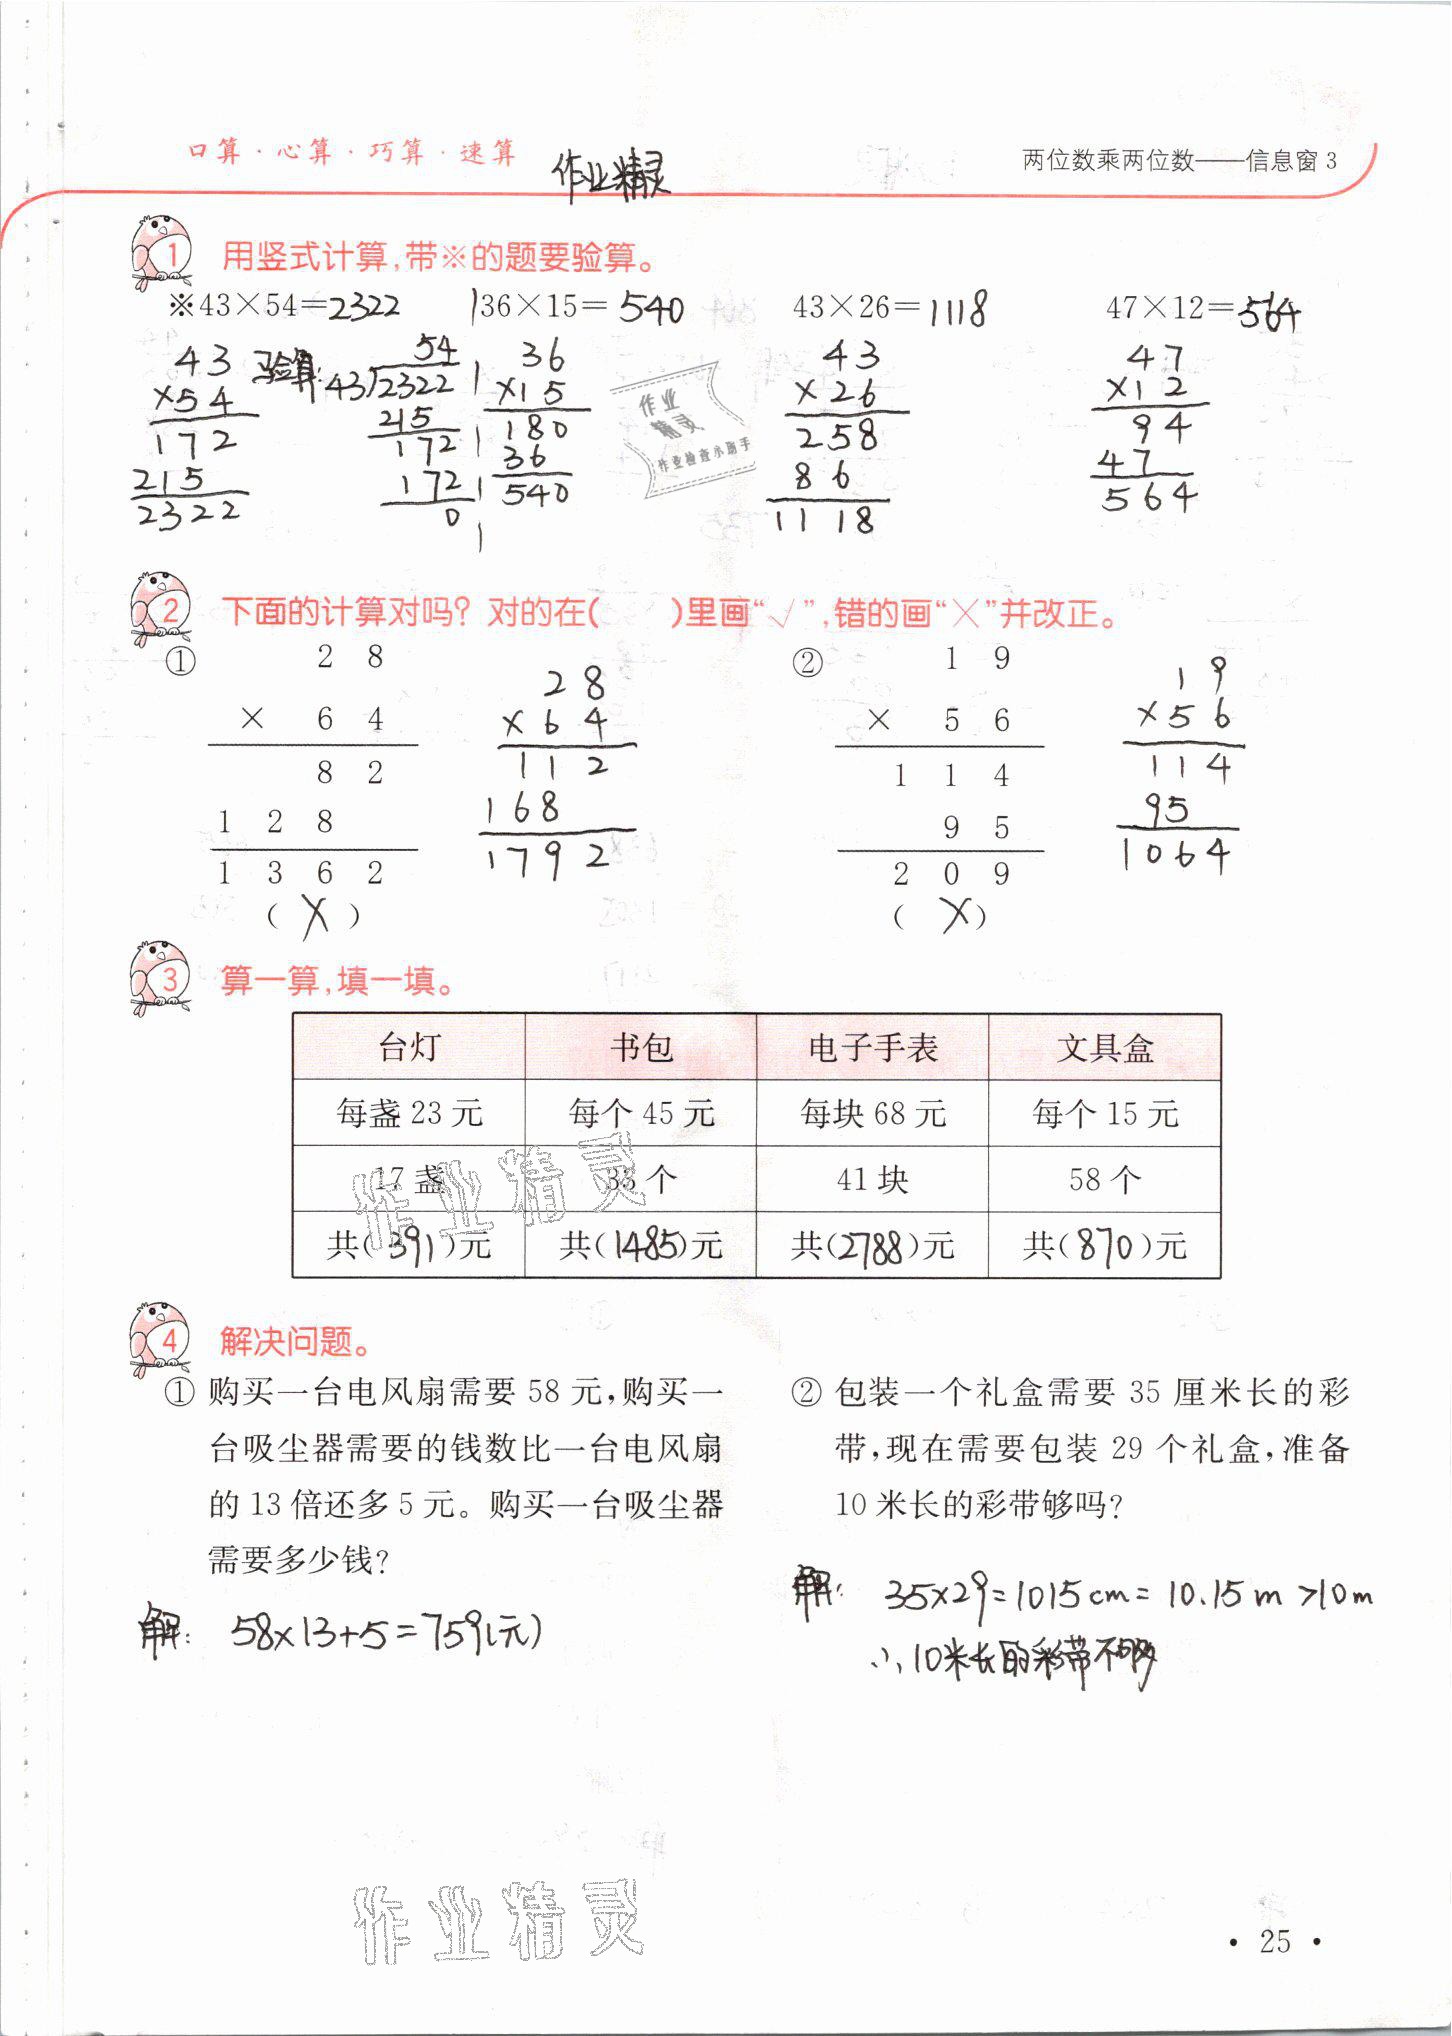 口算·心算·巧算·速算
作业精灵
两位数乘两位数——信息窗3
1 用竖式计算,带※的题要验算。
※43×54=2322 36×15=540 43×26=1118 47×12=564
43 验算: 54 36 43 47
×54 43)2322 ×15 ×26 ×12
172 215 180 258 94
215 172 36 86 47
2322 172 540 1118 564
0
作业
精灵
作业检查小助手
2 下面的计算对吗?对的在( )里画“√”,错的画“×”并改正。
① 2 8 28 ② 1 9 19
× 6 4 ×64 × 5 6 ×56
8 2 112 1 1 4 114
1 2 8 168 9 5 95
1 3 6 2 1792 2 0 9 1064
( X ) ( X )
3 算一算,填一填。
台灯 书包 电子手表 文具盒
每盏23元 每个45元 每块68元 每个15元
17盏 33个 41块 58个
共(391)元 共(1485)元 共(2788)元 共(870)元
作业精灵
4 解决问题。
① 购买一台电风扇需要58元,购买一
台吸尘器需要的钱数比一台电风扇
的13倍还多5元。购买一台吸尘器
需要多少钱?
解: 58×13+5=759(元)
② 包装一个礼盒需要35厘米长的彩
带,现在需要包装29个礼盒,准备
10米长的彩带够吗?
解: 35×29=1015cm=10.15m>10m
∴10米长的彩带不够
作业精灵
· 25 ·